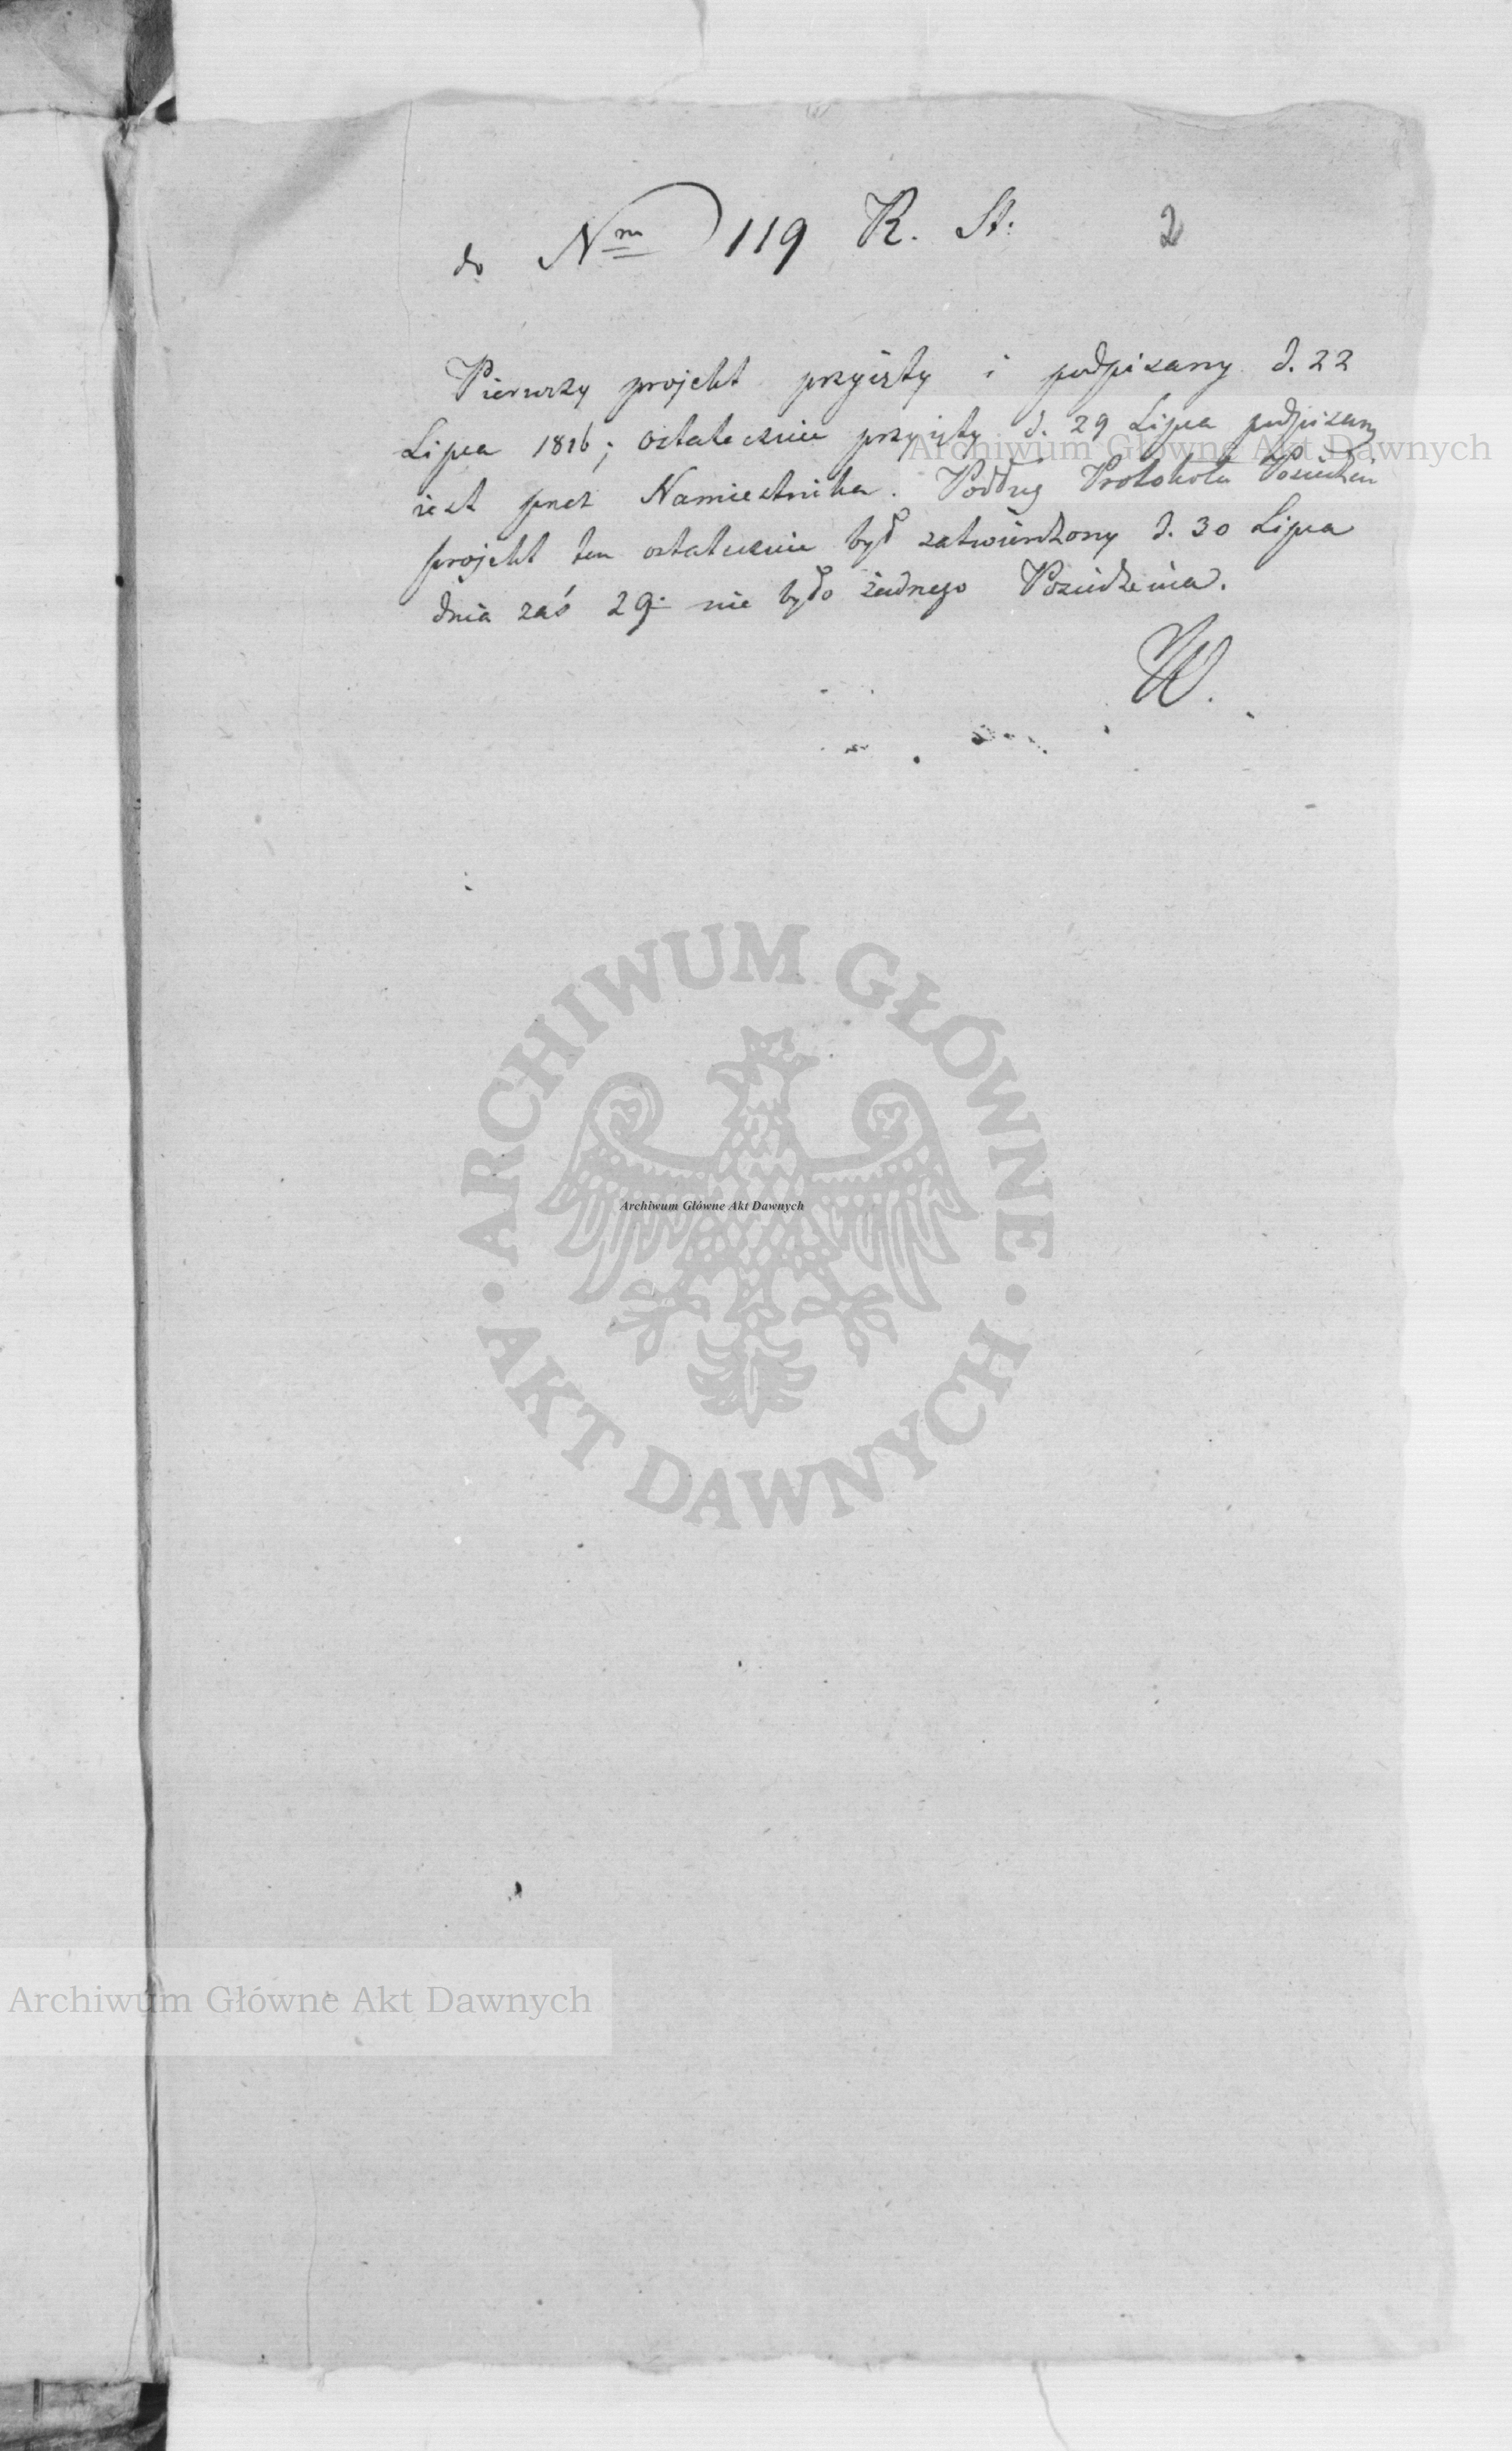 do Nrn 119 R. St. 2
Pierwszy projekt przyięty i podpisany d. 22
Lipca 1816; ostatecznie przyięty d. 29 Lipca podpisany
iest przez Namiestnika. Podług Protokołu Posiedzeń
projekt ten ostatecznie był zatwierdzony d. 30 Lipca
dnia zaś 29. nie było żadnego Posiedzenia.
W.
Archiwum Główne Akt Dawnych
ARCHIWUM GŁÓWNE · AKT DAWNYCH ·
Archiwum Główne Akt Dawnych
Archiwum Główne Akt Dawnych